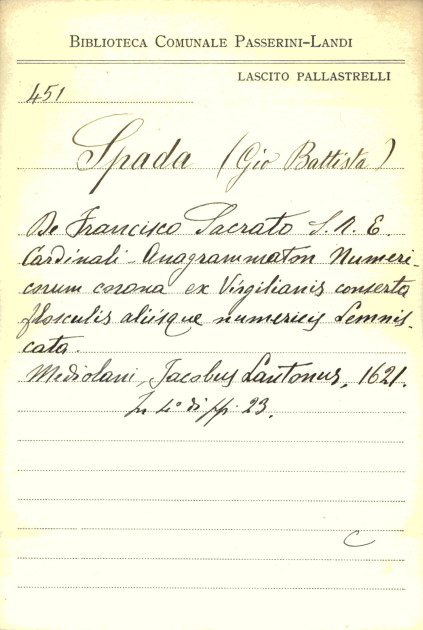 BIBLIOTECA COMUNALE PASSERINI-LANDI
LASCITO PALLASTRELLI
451
Spada (Gio Battista)
De Francisco Sacrato S. R. E.
Cardinali - Anagrammaton Numeri-
corum corona ex Virgilianis conserta
flosculis aliisque numericis Lemnis-
cata.
Mediolani, Jacobus Lantonus, 1621.
In 4° di pp. 23.
C